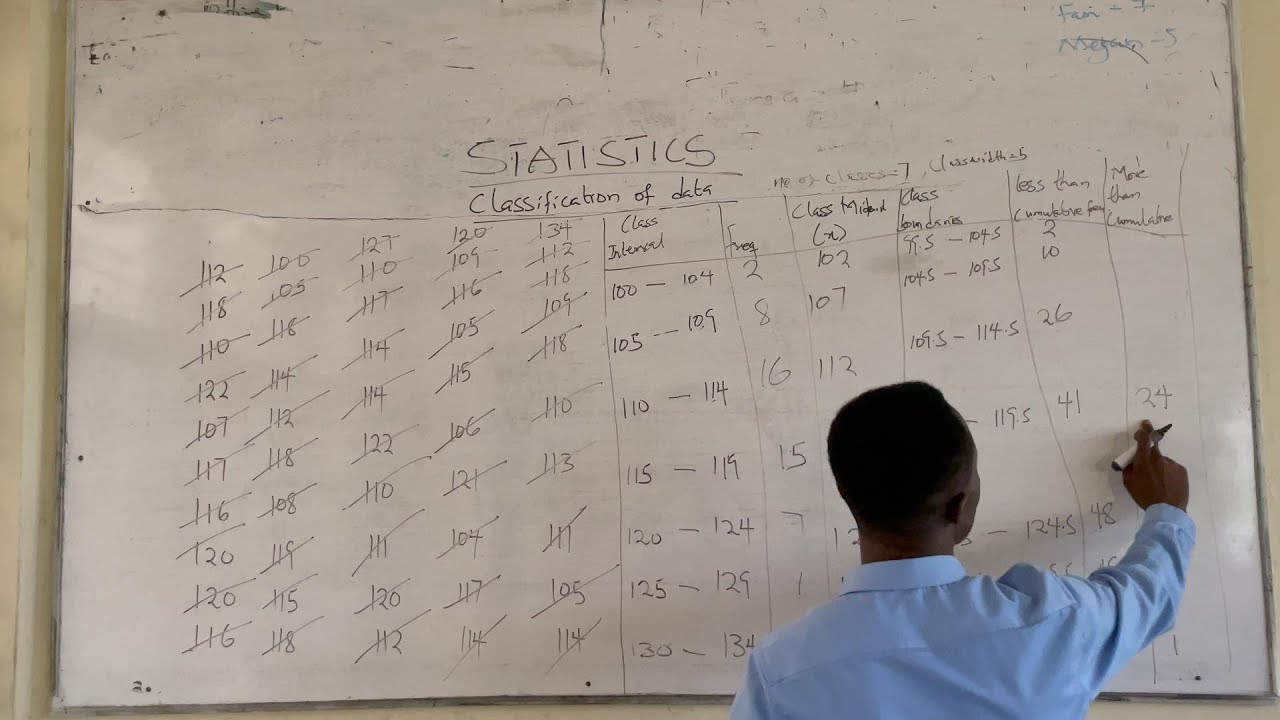 Fan - 7
Megan - 5
STATISTICS
Classification of data
no of classes = 7, Classwidth = 5
112 100 127 120 134
118 105 110 109 112
110 118 117 116 118
122 114 114 105 109
107 112 114 115 118
117 118 122 106 110
116 108 110 121 113
120 119 111 104 111
120 115 120 117 105
116 118 112 114 114
Class Interval Freq (x) Class boundaries less than Cumulative More than Cumulative
100 - 104 2 102 99.5 - 104.5 2
105 - 109 8 107 104.5 - 109.5 10
110 - 114 16 112 109.5 - 114.5 26
115 - 119 15 - 119.5 41 24
120 - 124 7 - 124.5 48
125 - 129 1
130 - 134 1